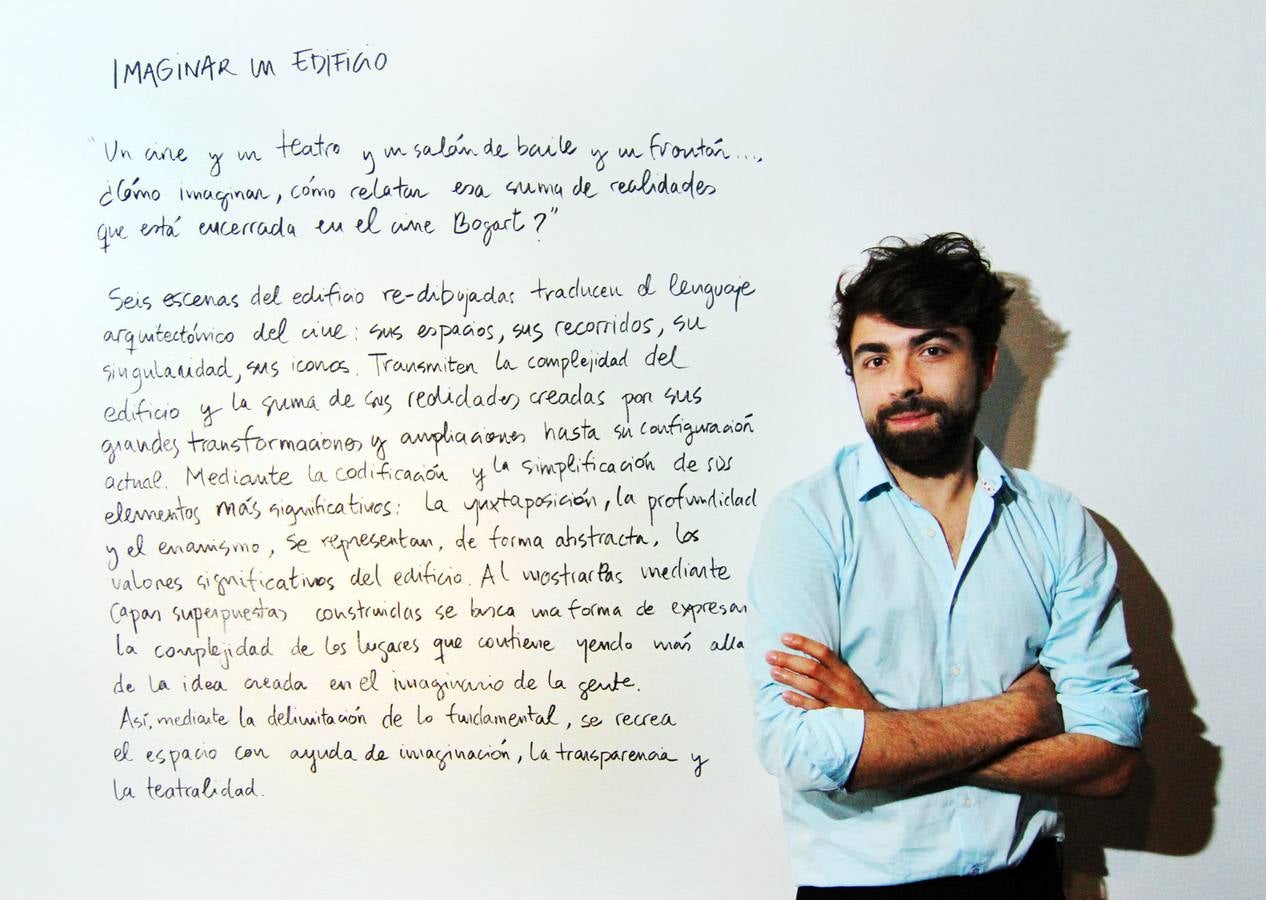 IMAGINAR UN EDIFICIO
"Un cine y un teatro y un salón de baile y un frontón...,
¿Cómo imaginar, cómo relatar esa suma de realidades
que está encerrada en el cine Bogart?"
Seis escenas del edificio re-dibujadas traducen el lenguaje
arquitectónico del cine: sus espacios, sus recorridos, su
singularidad, sus iconos. Transmiten la complejidad del
edificio y la suma de sus realidades creadas por sus
grandes transformaciones y ampliaciones hasta su configuración
actual. Mediante la codificación y la simplificación de sus
elementos más significativos: la yuxtaposición, la profundidad
y el enanismo, se representan, de forma abstracta, los
valores significativos del edificio. Al mostrarlas mediante
capas superpuestas construidas se busca una forma de expresar
la complejidad de los lugares que contiene yendo más alla
de la idea creada en el imaginario de la gente.
Así, mediante la delimitación de lo fundamental, se recrea
el espacio con ayuda de imaginación, la transparencia y
la teatralidad.